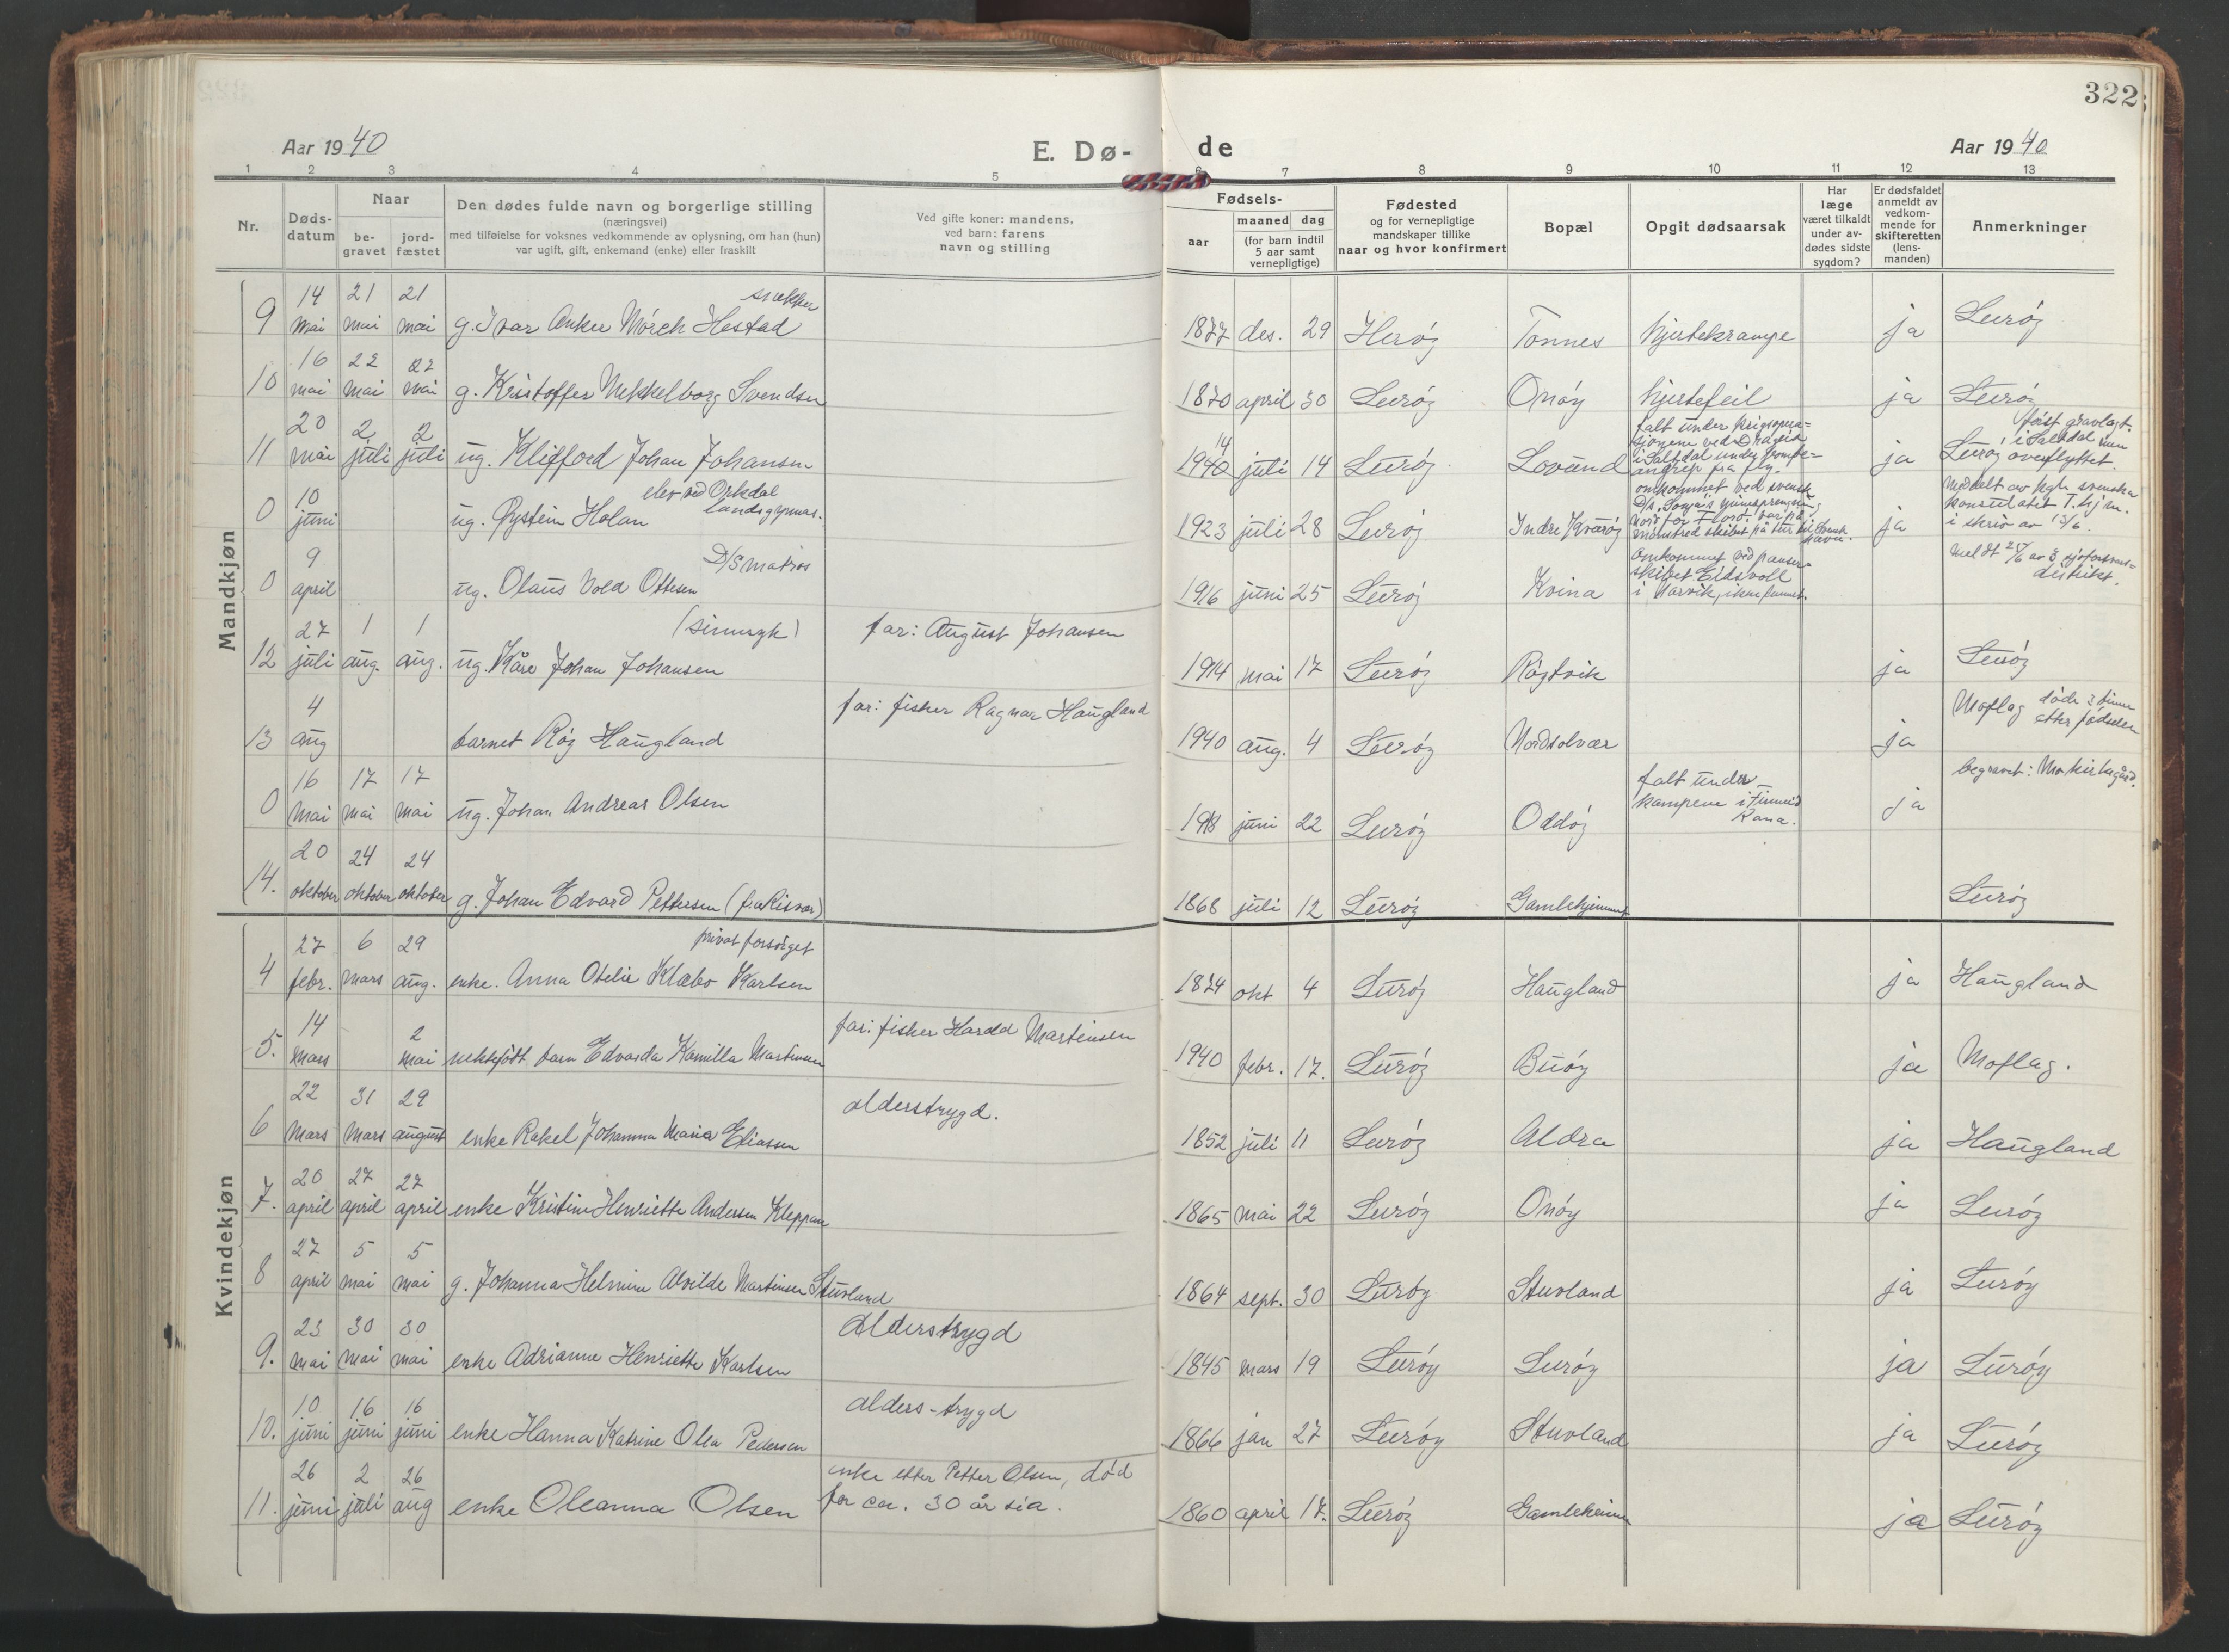 322
Aar 1940
E. Dø-
de
Aar 1940
1 2 3 4 5 6 7 8 9 10 11 12 13
Nr.
Døds-
datum
Naar
be-
gravet
jord-
fæstet
Den dødes fulde navn og borgerlige stilling
(næringsvei)
med tilføielse for voksnes vedkommende av oplysning, om han (hun)
var ugift, gift, enkemand (enke) eller fraskilt
Ved gifte koner: mandens,
ved barn: farens
navn og stilling
Fødsels-
aar
maaned dag
(for barn indtil
5 aar samt
vernepligtige)
Fødested
og for vernepligtige
mandskaper tillike
naar og hvor konfirmert
Bopæl
Opgit dødsaarsak
Har
læge
været tilkaldt
under av-
dødes sidste
sygdom?
Er dødsfaldet
anmeldt av
vedkom-
mende for
skifteretten
(lens-
manden)
Anmerkninger
Mandkjøn
9 14 mai 21 mai 21 mai g. Ivar Anker Mørch Hestad snekker 1877 des. 29 Herøy Tonnes hjertekrampe ja Lurøy
10 16 mai 22 mai 22 mai g. Kristoffer Svendsen 1870 april 30 Lurøy Onøy hjertefeil ja Lurøy
11 20 mai 2 juli 2 juli ug. Klifford Johan Johansen 1940 14 juli 14 Lurøy Lovund falt under krigsopera-
sjonene ved
i Saltdal under bombe-
angrep fra fly. ja Lurøy først gravlagt
i Saltdal men
overflyttet.
0 10 juni ug. Øystein Holan elev ved Orkdal
landsgymnas. 1923 juli 28 Lurøy Indre Kvarøy omkommet ved svensk
D/s "Sonja's minesprengning
ja Meddelt av kgl. svenske
konsulatet T.hjm.
i skriv av 12/6.
0 9 april ug. Olaus Vold Ottesen D/S matros 1916 juni 25 Lurøy Kvina Omkommet ved panser-
skibet Eidsvoll
i Narvik, ikke funnet. Meldt 25/6 av 3 sjøforsvars-
distrikt.
12 27 juli 1 aug. 1 aug. ug. Kåre Johan Johansen (sinnsyk) far: August Johansen 1914 mai 17 Lurøy Røytvik ja Lurøy
13 4 aug barnet Roy Haugland far: fisker Ragnar Haugland 1940 aug. 4 Lurøy Nordsolvær ja Moflag døde 2 timer
etter fødselen
0 16 mai 17 mai 17 mai ug. Johan Andreas Olsen 1918 juni 22 Lurøy Oddøy falt under
kampene i Finneid
Rana. ja begravet: Mo kirkegård.
14. 20 oktober 24 oktober 24 oktober g. Johan Edvard Pettersen (fra Risvær) 1868 juli 12 Lurøy Gamlehjemmet Lurøy
Kvindekjøn
4 27 febr. 6 mars 29 aug. enke. Anna Otelie Klæbo Karlsen privat forsørget 1874 okt 4 Lurøy Haugland ja Haugland
5. 14 mars 2 mai ektefødt barn Edvarda Kamilla Martinsen far: fisker Harald Martinsen 1940 febr. 17. Lurøy Buøy ja Moflag.
6 22 mars 31 mars 29 august enke Rakel Johanna Maria Eliassen alderstrygd. 1852 juli 11 Lurøy Aldra ja Haugland
7. 20 april 27 april 27 april enke Kristine Henriette Andersen Kleppan 1865 mai 22 Lurøy Onøy ja Lurøy
8 27 april 5 mai 5 mai g. Johanna Helmine Alvilde Martinsen Stuvland 1864 sept. 30 Lurøy Stuvland ja Lurøy
9. 23 mai 30 mai 30 mai enke Adrianne Henriette Karlsen Alderstrygd 1845 mars 19 Lurøy Lurøy ja Lurøy
10. 10 juni 16 juni 16 juni enke Hanna Katrine Olea Pedersen alders-trygd 1866 jan 27 Lurøy Stuvland ja Lurøy
11. 26 juni 2 juli 26 aug enke Oleanna Olsen enke etter Petter Olsen, død
for ca. 30 år sia. 1860 april 17. Lurøy Gamleheimen ja Lurøy